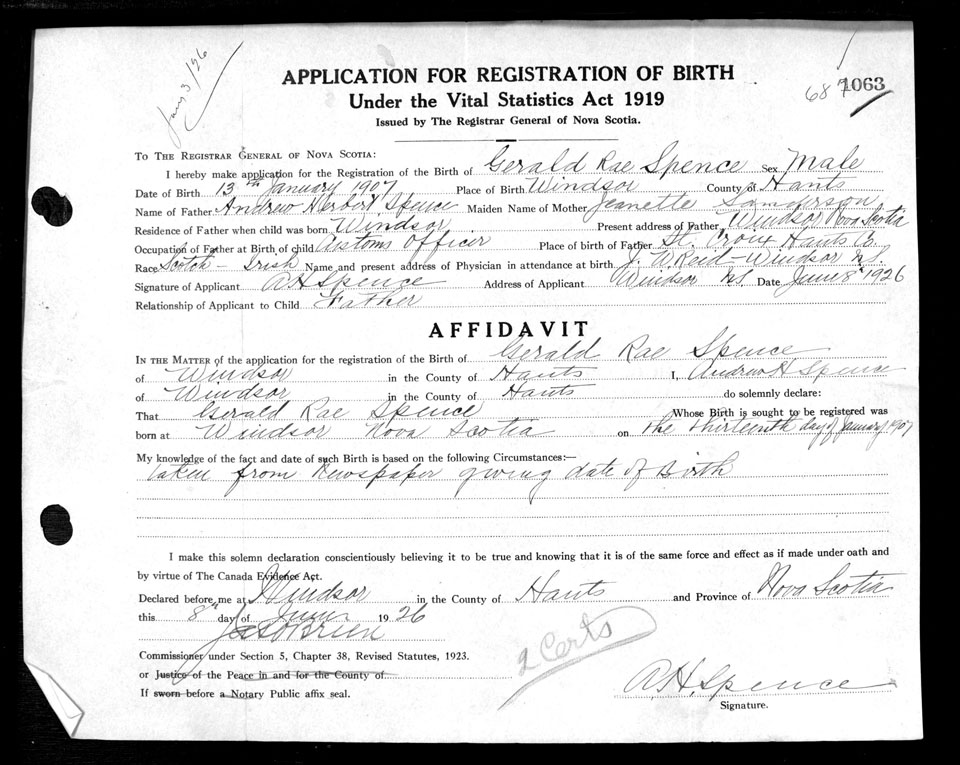 Jany 3/26
687
1063
APPLICATION FOR REGISTRATION OF BIRTH
Under the Vital Statistics Act 1919
Issued by The Registrar General of Nova Scotia.
TO THE REGISTRAR GENERAL OF NOVA SCOTIA:
I hereby make application for the Registration of the Birth of Gerald Rae Spence Sex Male
Date of Birth 13th January 1907 Place of Birth Windsor County of Hants
Name of Father Andrew Herbert Spence Maiden Name of Mother Jeanette Sanderson
Residence of Father when child was born Windsor Present address of Father Windsor Nova Scotia
Occupation of Father at Birth of child Customs Officer Place of birth of Father St. Croix Hants Co.
Race Scotch - Irish Name and present address of Physician in attendance at birth J. W. Reid - Windsor N.S.
Signature of Applicant A H Spence Address of Applicant Windsor N.S. Date June 8th 1926
Relationship of Applicant to Child Father
AFFIDAVIT
IN THE MATTER of the application for the registration of the Birth of Gerald Rae Spence
of Windsor in the County of Hants I, Andrew H Spence
of Windsor in the County of Hants do solemnly declare:
That Gerald Rae Spence Whose Birth is sought to be registered was
born at Windsor Nova Scotia on the thirteenth day of January 1907
My knowledge of the fact and date of such Birth is based on the following Circumstances:—
taken from Newspaper giving date of Birth
I make this solemn declaration conscientiously believing it to be true and knowing that it is of the same force and effect as if made under oath and
by virtue of The Canada Evidence Act.
Declared before me at Windsor in the County of Hants and Province of Nova Scotia
this 8th day of June 1926
Jas O'Brien
Commissioner under Section 5, Chapter 38, Revised Statutes, 1923.
or Justice of the Peace in and for the County of
If sworn before a Notary Public affix seal.
2 Certs
A. H. Spence
Signature.